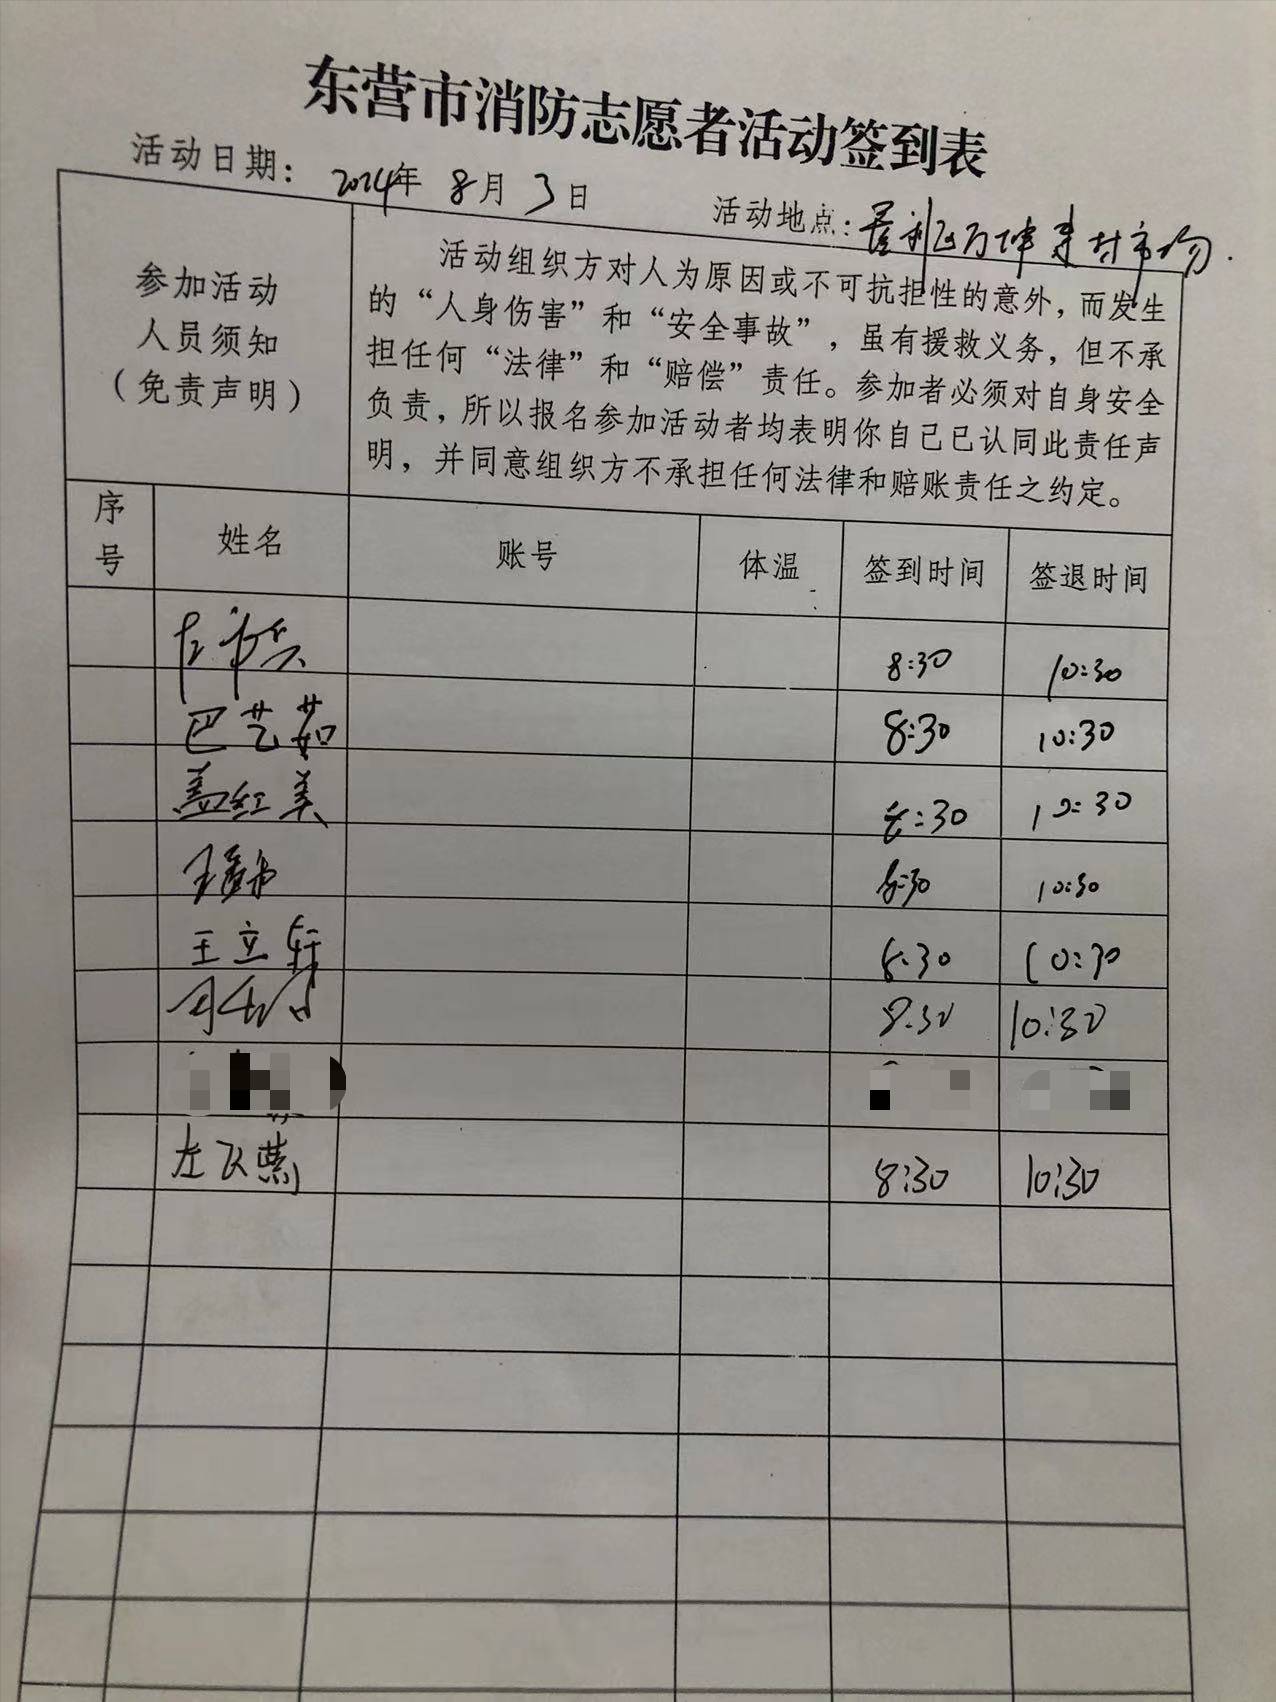 东营市消防志愿者活动签到表
活动日期: 2024年 8月 3日 活动地点:垦利区万坤建材市场.
参加活动
人员须知
(免责声明)
活动组织方对人为原因或不可抗拒性的意外,而发生
的“人身伤害”和“安全事故”,虽有援救义务,但不承
担任何“法律”和“赔偿”责任。参加者必须对自身安全
负责,所以报名参加活动者均表明你自己已认同此责任声
明,并同意组织方不承担任何法律和赔账责任之约定。
序号 姓名 账号 体温 签到时间 签退时间
8:30 10:30
巴艺茹 8:30 10:30
盖红美 8:30 10:30
8:30 10:30
王立轩 8:30 10:30
8:30 10:30
左飞燕 8:30 10:30